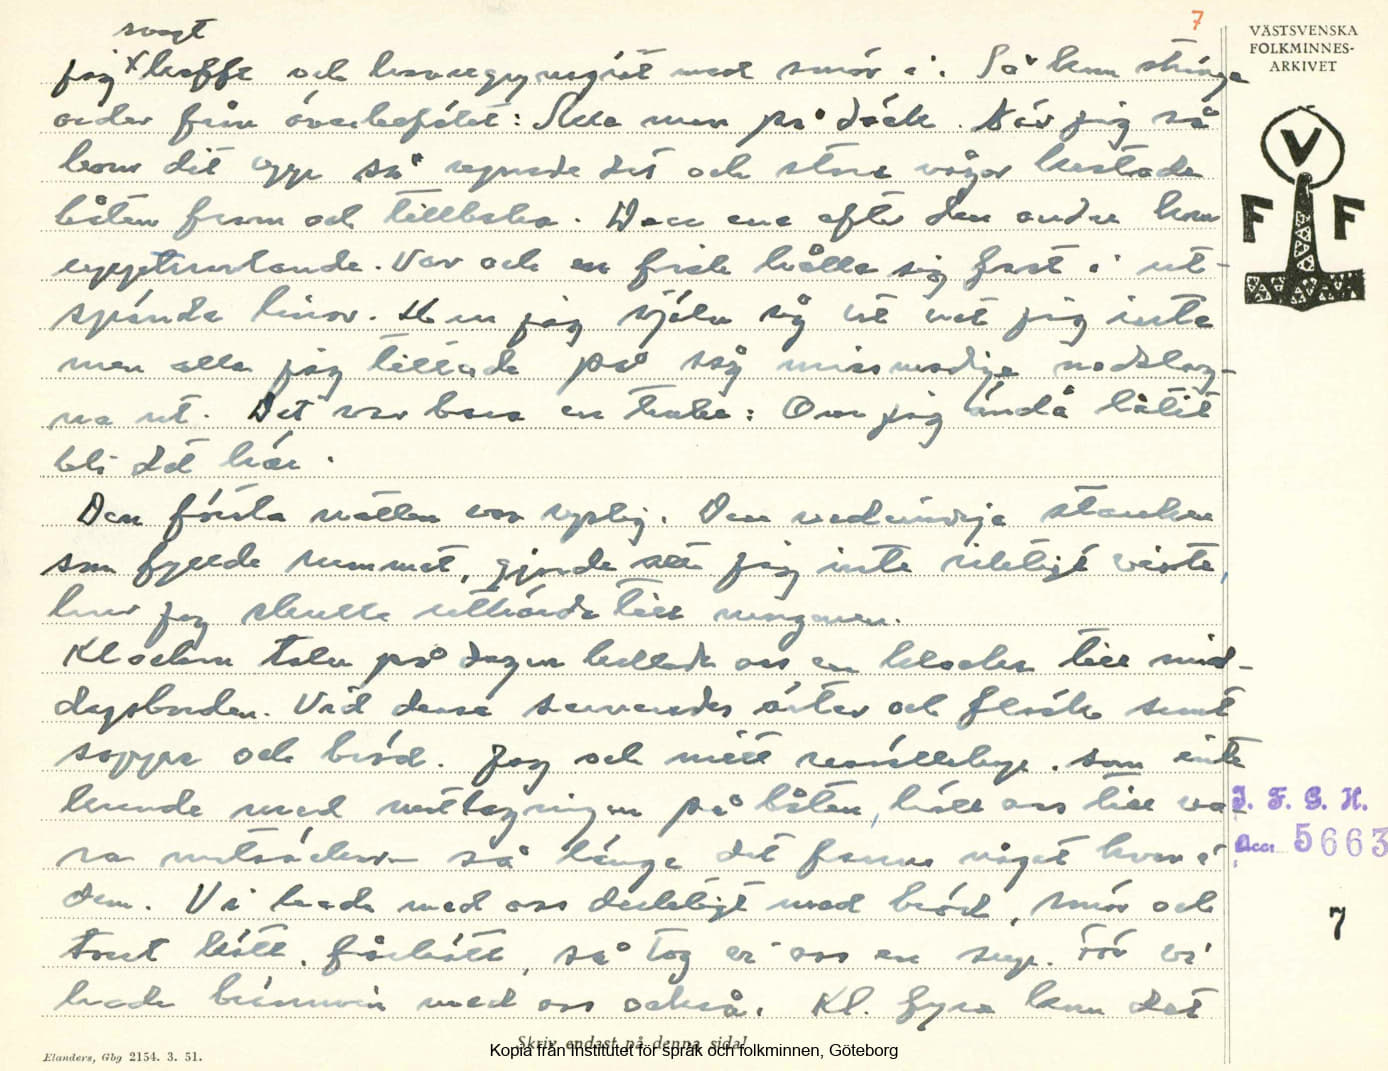 7
VÄSTSVENSKA
FOLKMINNES-
ARKIVET
svagt
jag x kaffe och havregrynsgröt med smör i. Så kom stränga
order från överbefälet: Alla man på däck. När jag så
kom dit upp så regnade det och stora vågor kastade
båten fram och tillbaka. Den ena efter den andra kom
uppstörtande. Var och en fick hålla sig fast i ut-
spända linor. Hur jag själv såg ut vet jag inte
men alla jag tittade på såg missmodiga nedslag-
na ut. Det var bara en tanke: Om jag ändå låtit
bli det här.
Den första natten var ryslig. Den vedervärdiga stanken
som fyllde rummet, gjorde att jag inte riktigt visste,
hur jag skulle uthärda till morgonen.
Klockan tolv på dagen kallade oss en klocka till mid-
dagsborden. Vid dessa serverades ärter och fläsk samt
soppa och bröd. Jag och mitt resällskap, som inte
kunde med matlagningen på båten, höll oss till vå-
ra matsäckar så länge det fanns något kvar i
dem. Vi hade med oss duktigt med bröd, smör och
torrt kött, fårkött, så tog vi oss en sup. För vi
hade brännvin med oss också. Kl. fyra kom det
V
F F
I. F. G. H.
Acc. 5663
7
Skriv endast på denna sida!
Elanders, Gbg 2154. 3. 51.
Kopia från Institutet för språk och folkminnen, Göteborg